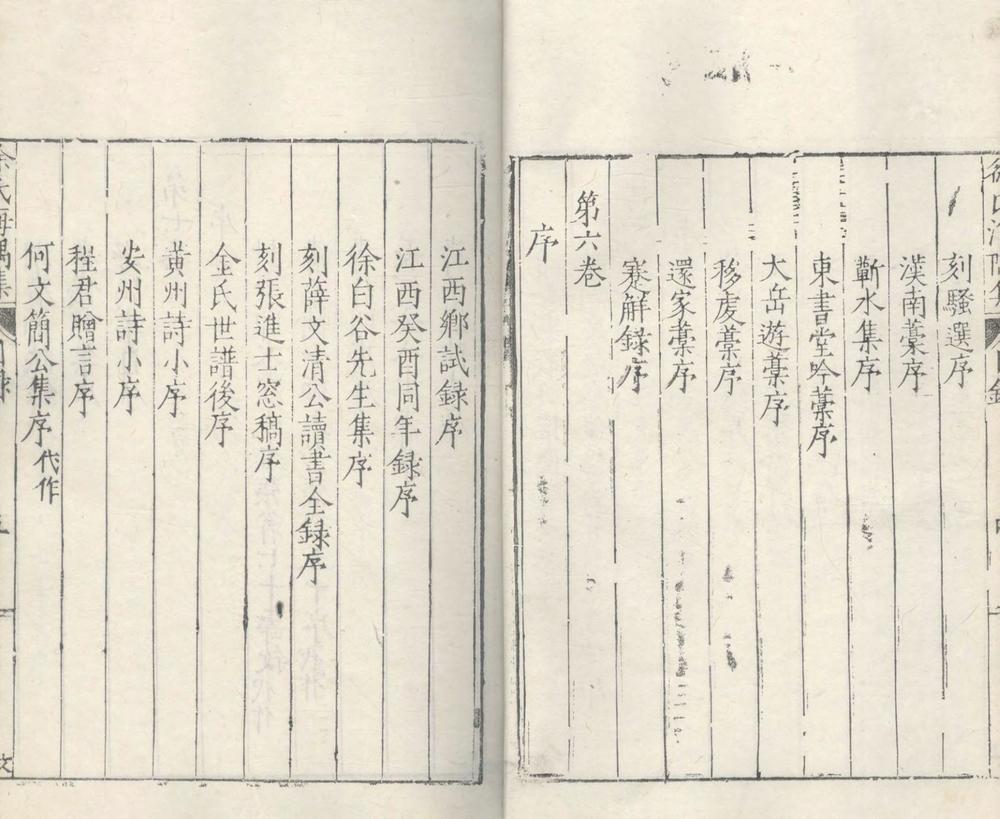 刻騷選序
漢南藁序
蘄水集序
東書堂吟藁序
大岳遊藁序
移䖍藁序
還家藁序
蹇解録序
第六卷
序
江西鄉試録序
江西癸酉同年録序
徐白谷先生集序
刻薛文清公讀書全録序
刻張進士窓稿序
金氏世譜後序
黃州詩小序
安州詩小序
程君贈言序
何文簡公集序 代作
氏海隅集